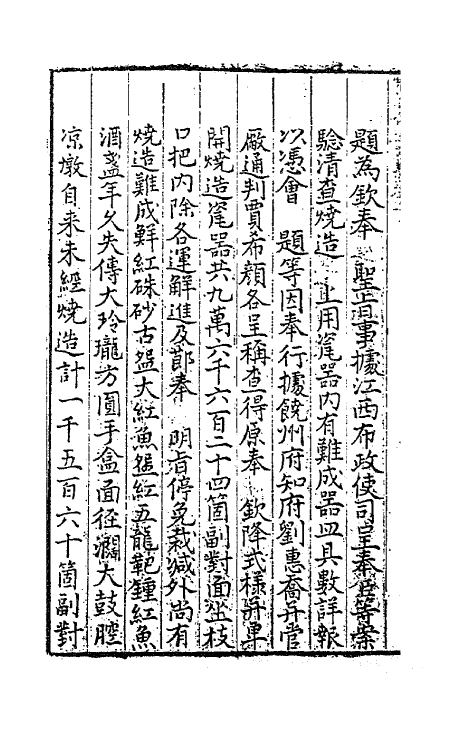 題為欽奉 聖旨事據江西布政使司呈奉臣等案
驗清查燒造 上用瓷器內有難成器皿具數詳報
以憑會 題等因奉行據饒州府知府劉惠喬并管
廠通判賈希顏各呈稱查得原奉 欽降式樣并單
開燒造瓷器共九萬六千六百二十四箇副對面坐枝
口把內除各運解進及節奉 明旨停免裁減外尚有
燒造難成鮮紅硃砂古盌大紅魚盌紅五龍靶鍾紅魚
酒盞年久失傳大玲瓏方圓手盒面徑濶大鼓腔
凉墩自來未經燒造計一千五百六十箇副對